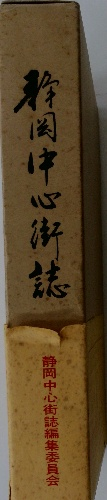 静岡中心街誌
静岡中心街誌編集委員会